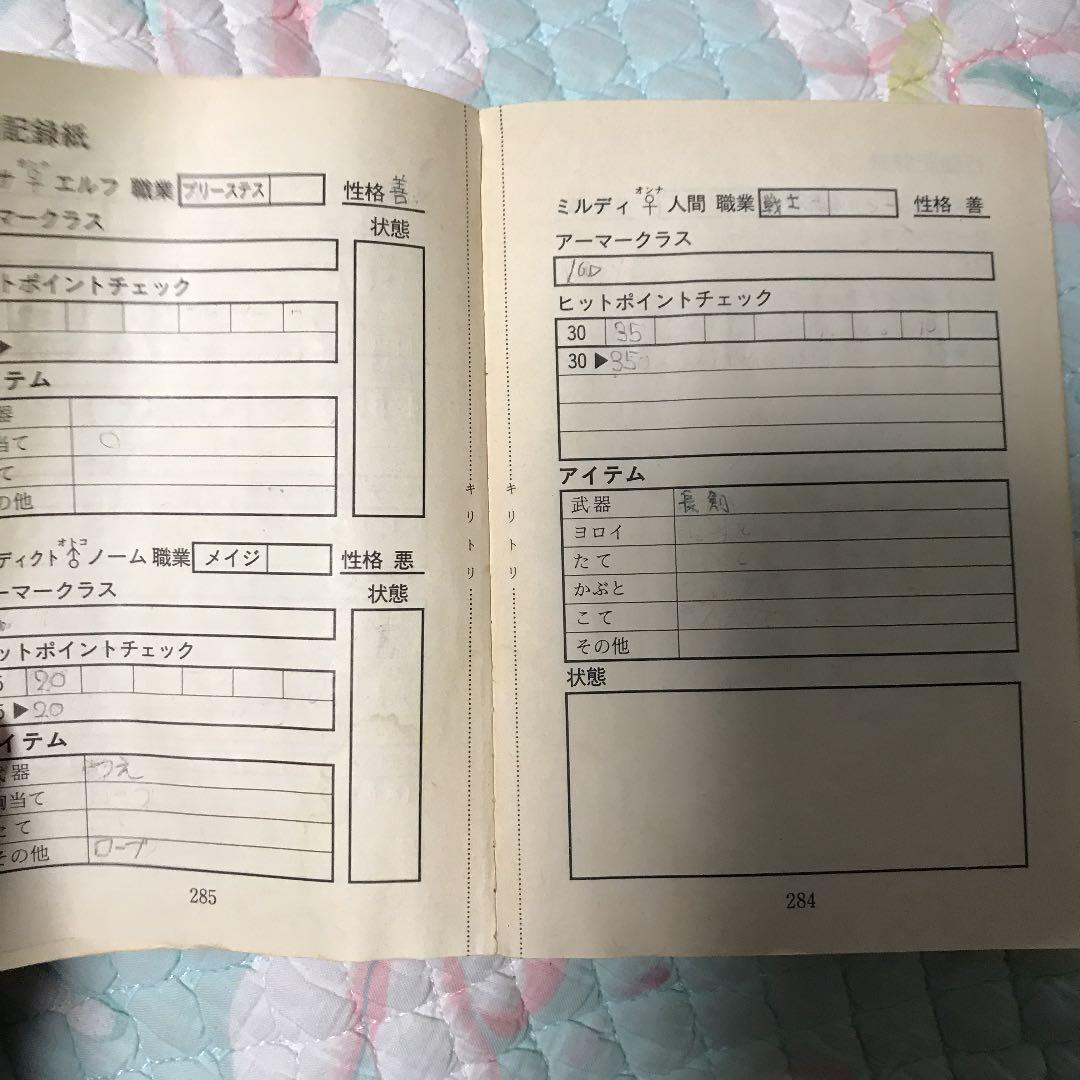 記録紙
オンナ
ナ♀エルフ 職業 プリーステス 性格 善
マークラス
状態
トポイントチェック
▶
テム
器
当て
て
の他
オトコ
ディクト♂ノーム 職業 メイジ 性格 悪
ーマークラス
状態
ットポイントチェック
5 20
5 ▶20
イテム
武器 つえ
胸当て
たて
その他 ローブ
285
キリトリ
キリトリ
オンナ
ミルディ♀人間 職業 戦士 性格 善
アーマークラス
10
ヒットポイントチェック
30 35
30 ▶35
アイテム
武器 長剣
ヨロイ
たて
かぶと
こて
その他
状態
284